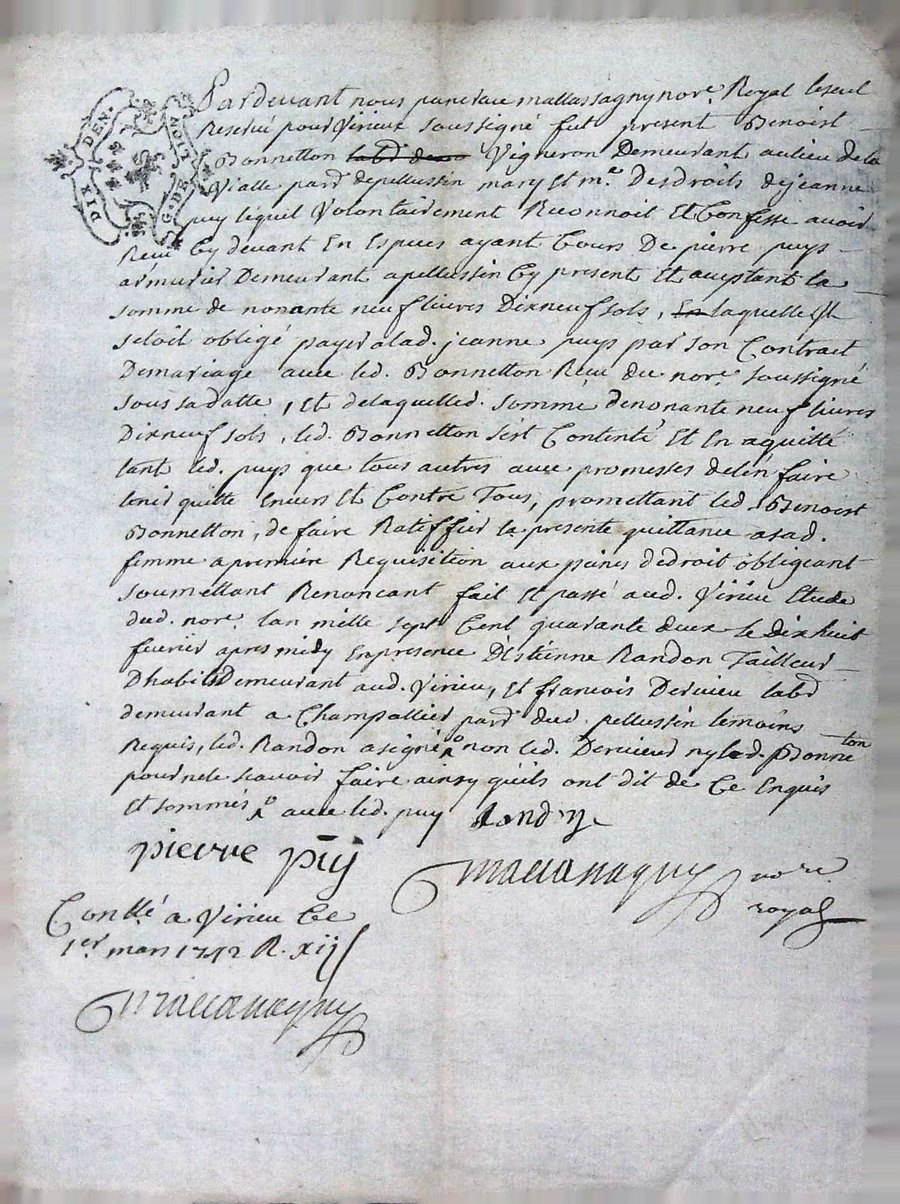 DIX DEN. G. DE LION
Pardevant nous mallassagny nore. Royal le seul
Reservé pour Virieux soussigné fut present Benoist
Bonnetton labr demo Vigneron Demeurant au lieu de la
Vialle parr de pellussin mary et me. Des droits de jeanne
puy lequel Volontairement Reconnoit Et Confesse avoir
Reçu Cy devant En Especes ayant Cours De pierre puys
armurier Demeurant a pellussin Cy present Et aceptant la
somme de nonante neuf livres Dixneuf sols, En laquelle il
setoit obligé payer a lad. jeanne puys par son Contract
De mariage avec led. Bonnetton Recu du nore. soussigné
sous sa datte, Et de laquelled. somme de nonante neuf livres
Dixneuf sols, led. Bonnetton s'est Contenté Et En a quitté
tant led. puys que tous autres avec promesses de l'en faire
tenir quitte Envers Et Contre Tous, promettant led. Benoist
Bonnetton, de faire Ratiffier la presente quittance a sad.
femme a premiere Requisition aux peines de droit obligeant
soumettant Renoncant fait Et passé aud. Virieu Etude
dud. nore. lan mille sept Cent quarante deux le Dixhuit
fevrier apres midy En presence D'Estienne Randon Tailleur
D'habits Demeurant aud. Virieu, Et francois Dervieu labr
demeurant a Champallier parr dud. pellussin temoins
Requis, led. Randon a signé non led. Dervieu ny led. Bonneton
pour ne le scavoir faire ainsy qu'ils ont dit de Ce Enquis
Et sommés avec led. puy
Randon
pierre puy
mallassagny nore
royal
Conllé a Virieu Ce
1er mars 1742 R. xij s
mallassagny